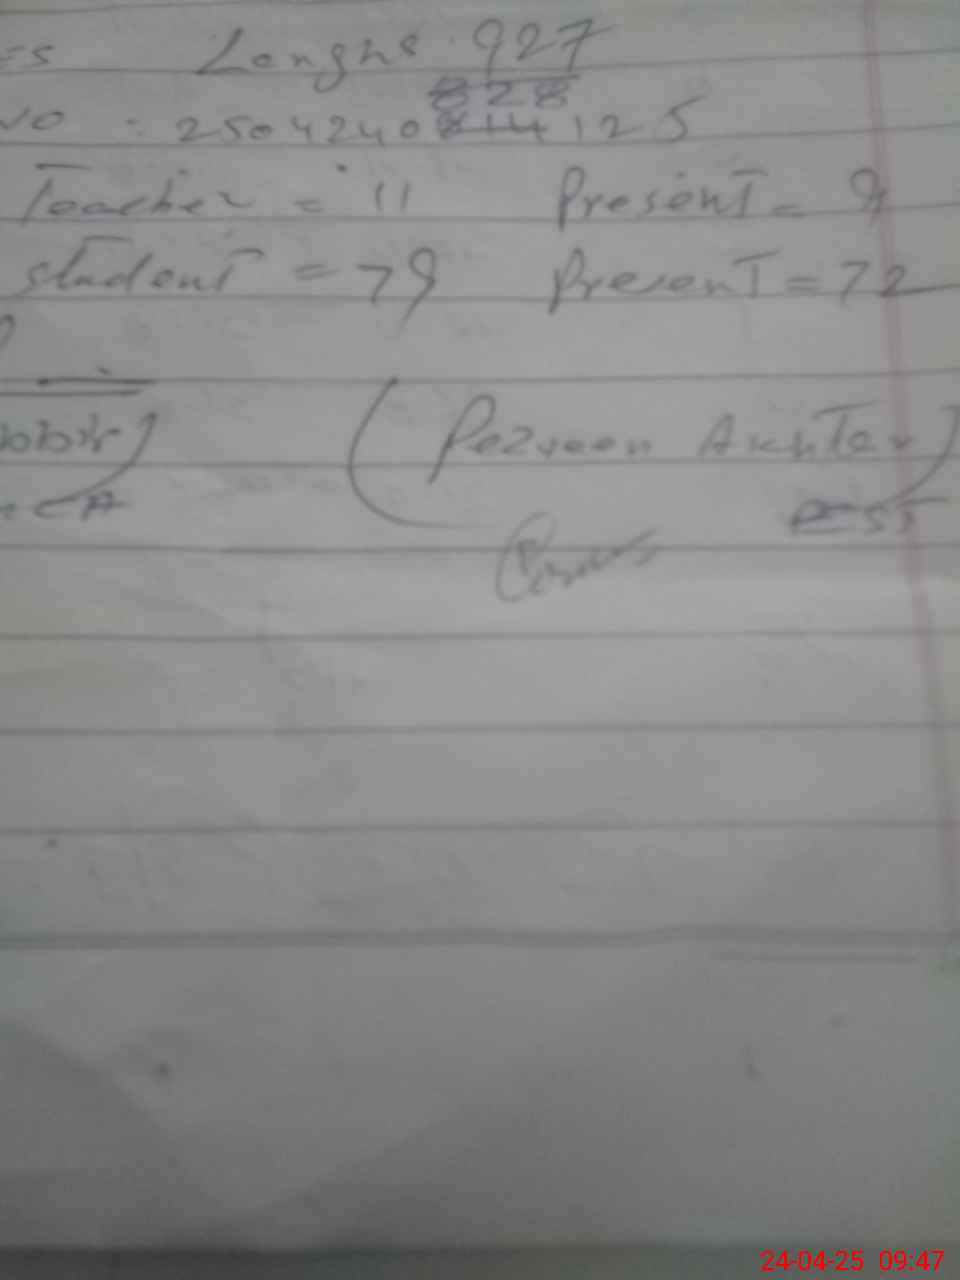 =s Lenghs. 927
828
NO : 2504240814125
Teacher = 11 Present = 9
student = 79 Present = 72
(Perveen Akhter)
SST
24-04-25 09:47